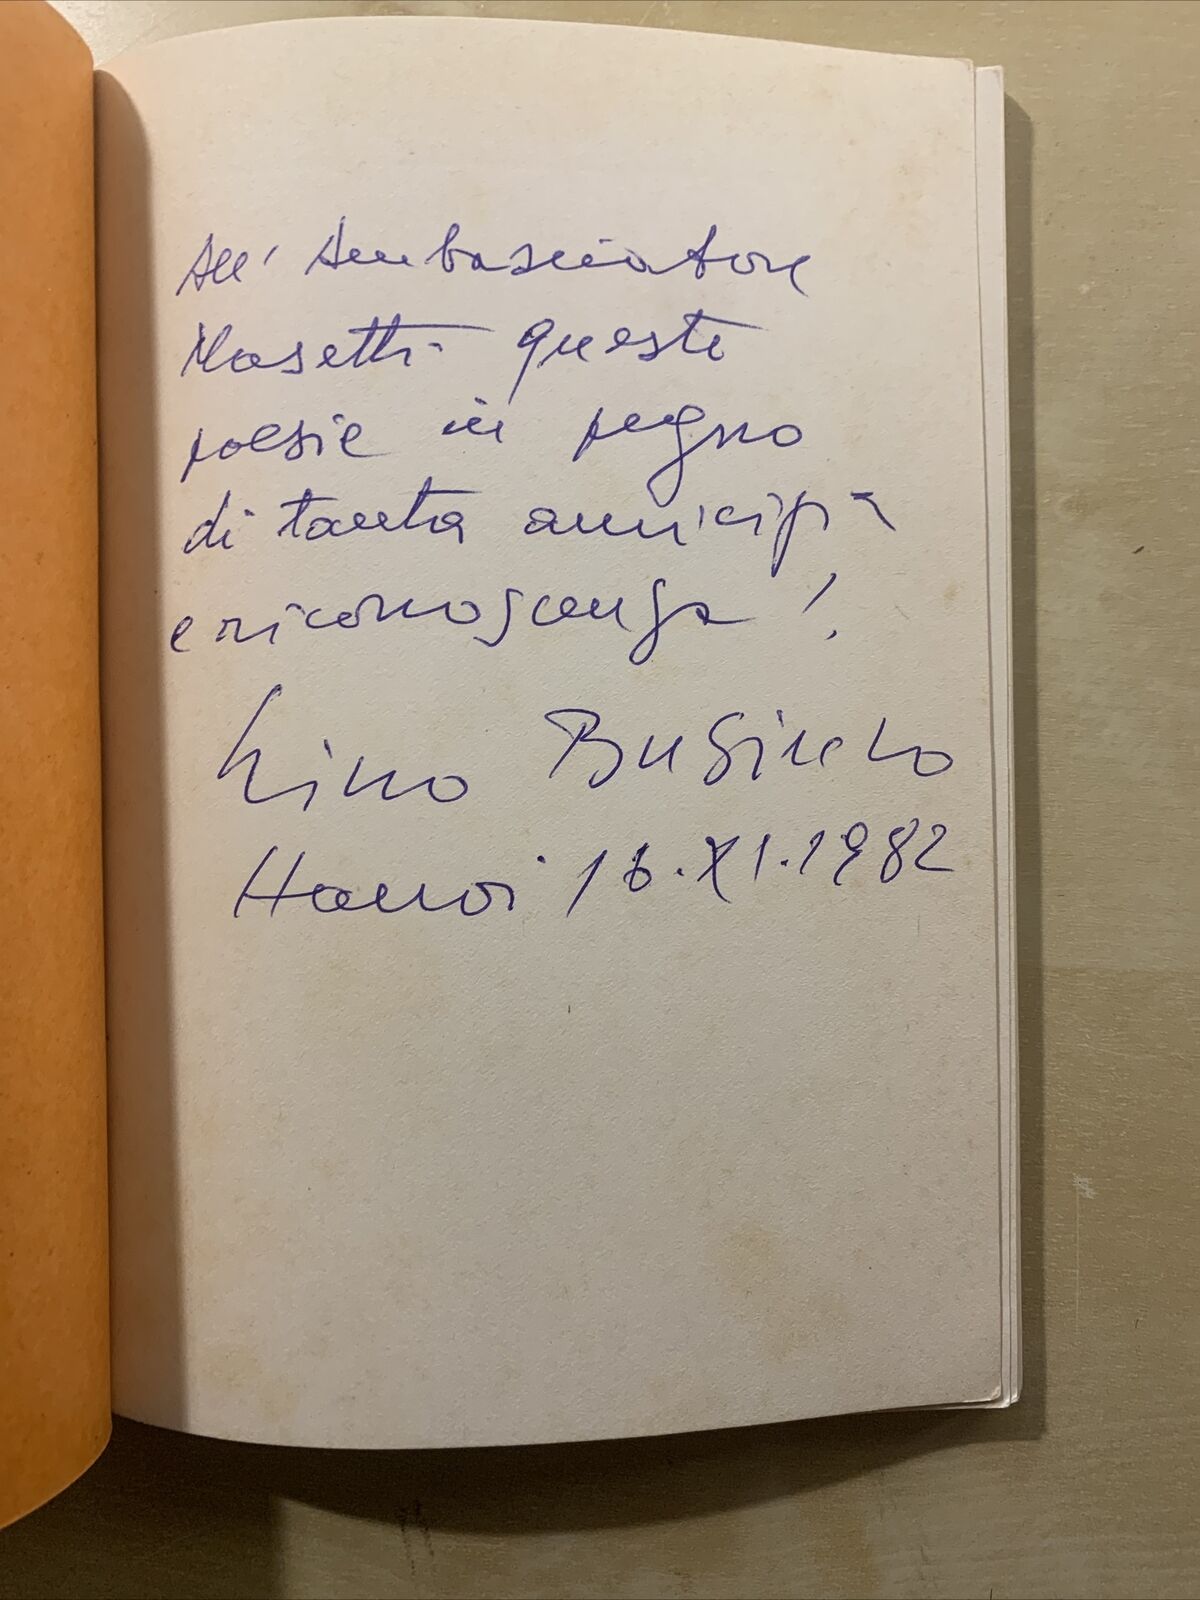 All' Ambasciatore
Masetti queste
poesie in pegno
di tanta amicizia
e riconoscenza!
Lino
Hanoi 16.XI.1982